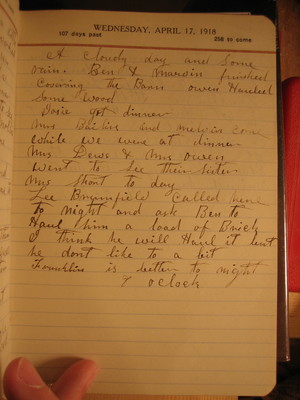 WEDNESDAY, APRIL 17, 1918
107 days past 258 to come
A cloudy day and some
rain. Ben & Marvin finished
Covering the Barn owen Hauled
Some wood
Josie got dinner
Mrs and melvin come
while we were at dinner
Mrs Dews & Mrs owen
went to see their sister
Mrs Shout to day
Lee Brumfield called here
to night and ask Ben to
Haul him a load of Brick
I think he will Haul it but
he dont like to a bit
Franklin is better to night
7 oclock